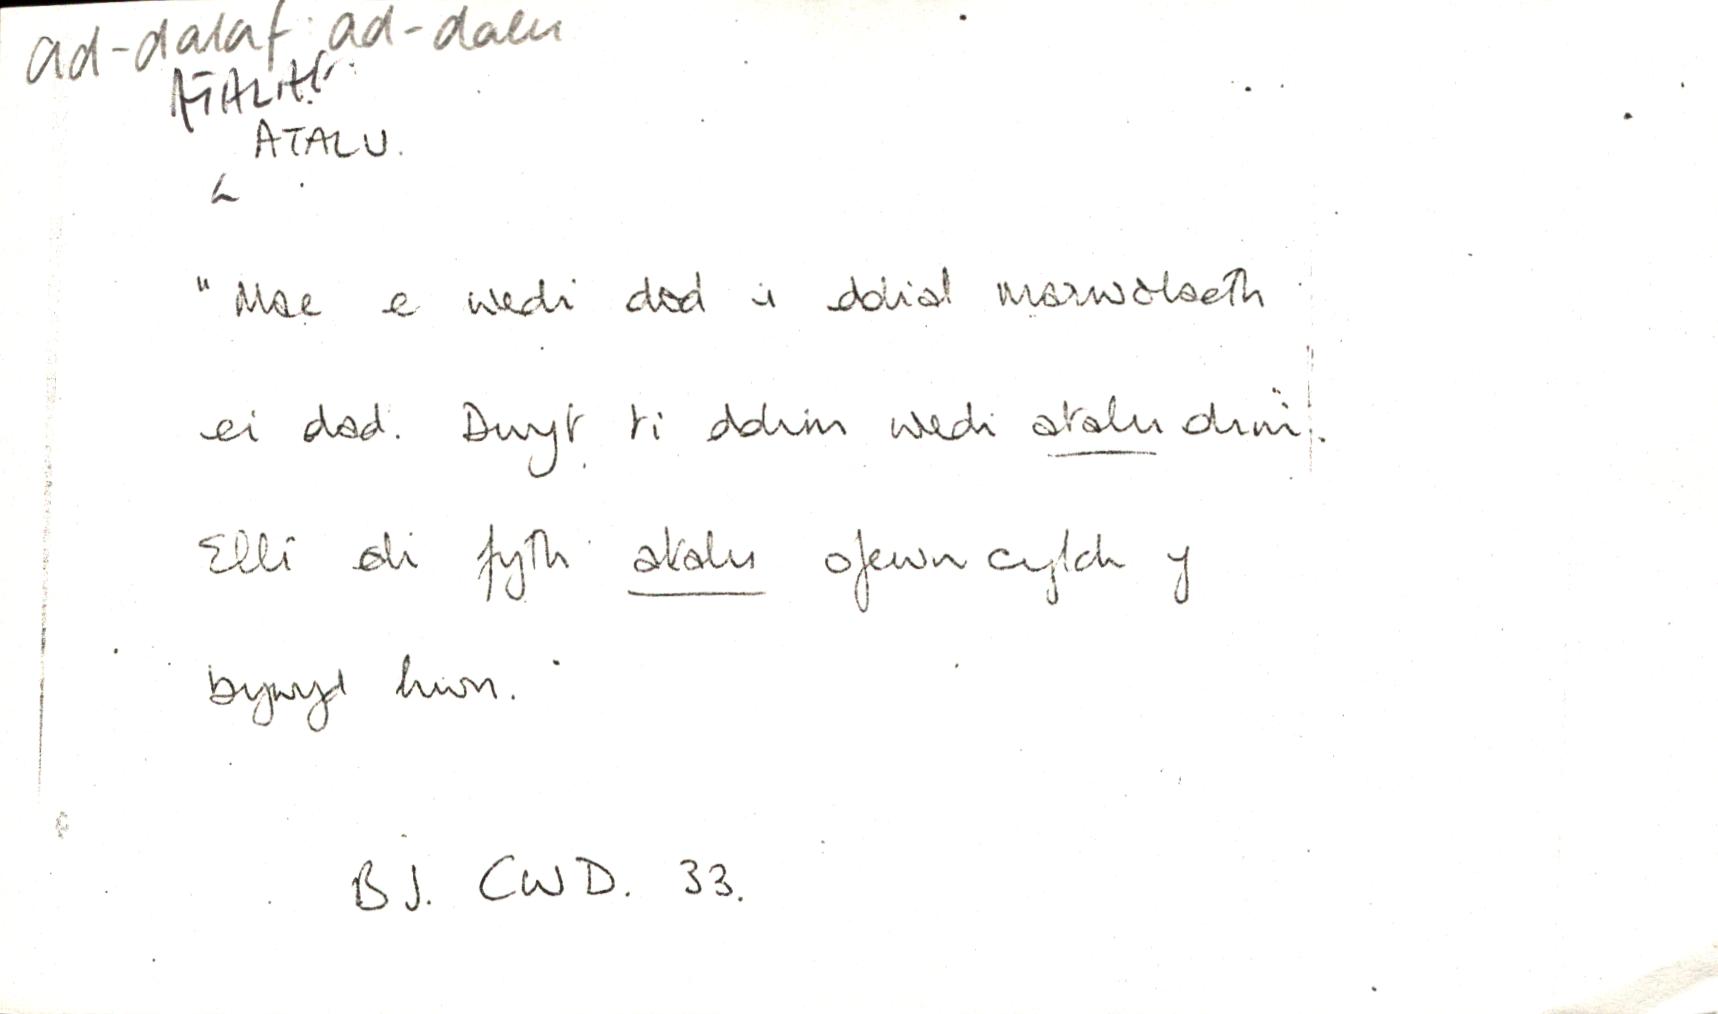 ad-dalaf: ad-dalu
ATALAF:
ATALU.
"Mae e wedi dod i ddial marwolaeth
ei dad. Dwyt ti ddim wedi atalu dim".
Elli di fyth atalu ofewn cylch y
bywyd hwn."
BJ. CWD. 33.